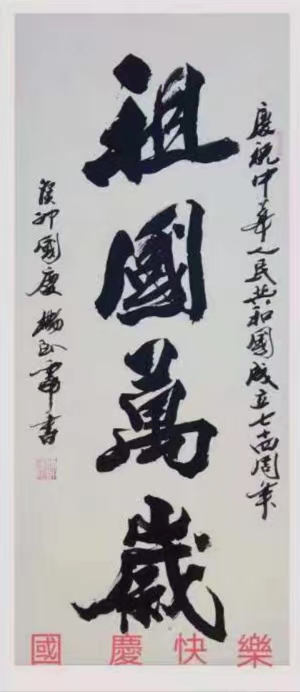 慶祝中華人民共和國成立七十四周年
祖國萬歲
癸卯國慶 楊正 書
國慶快樂